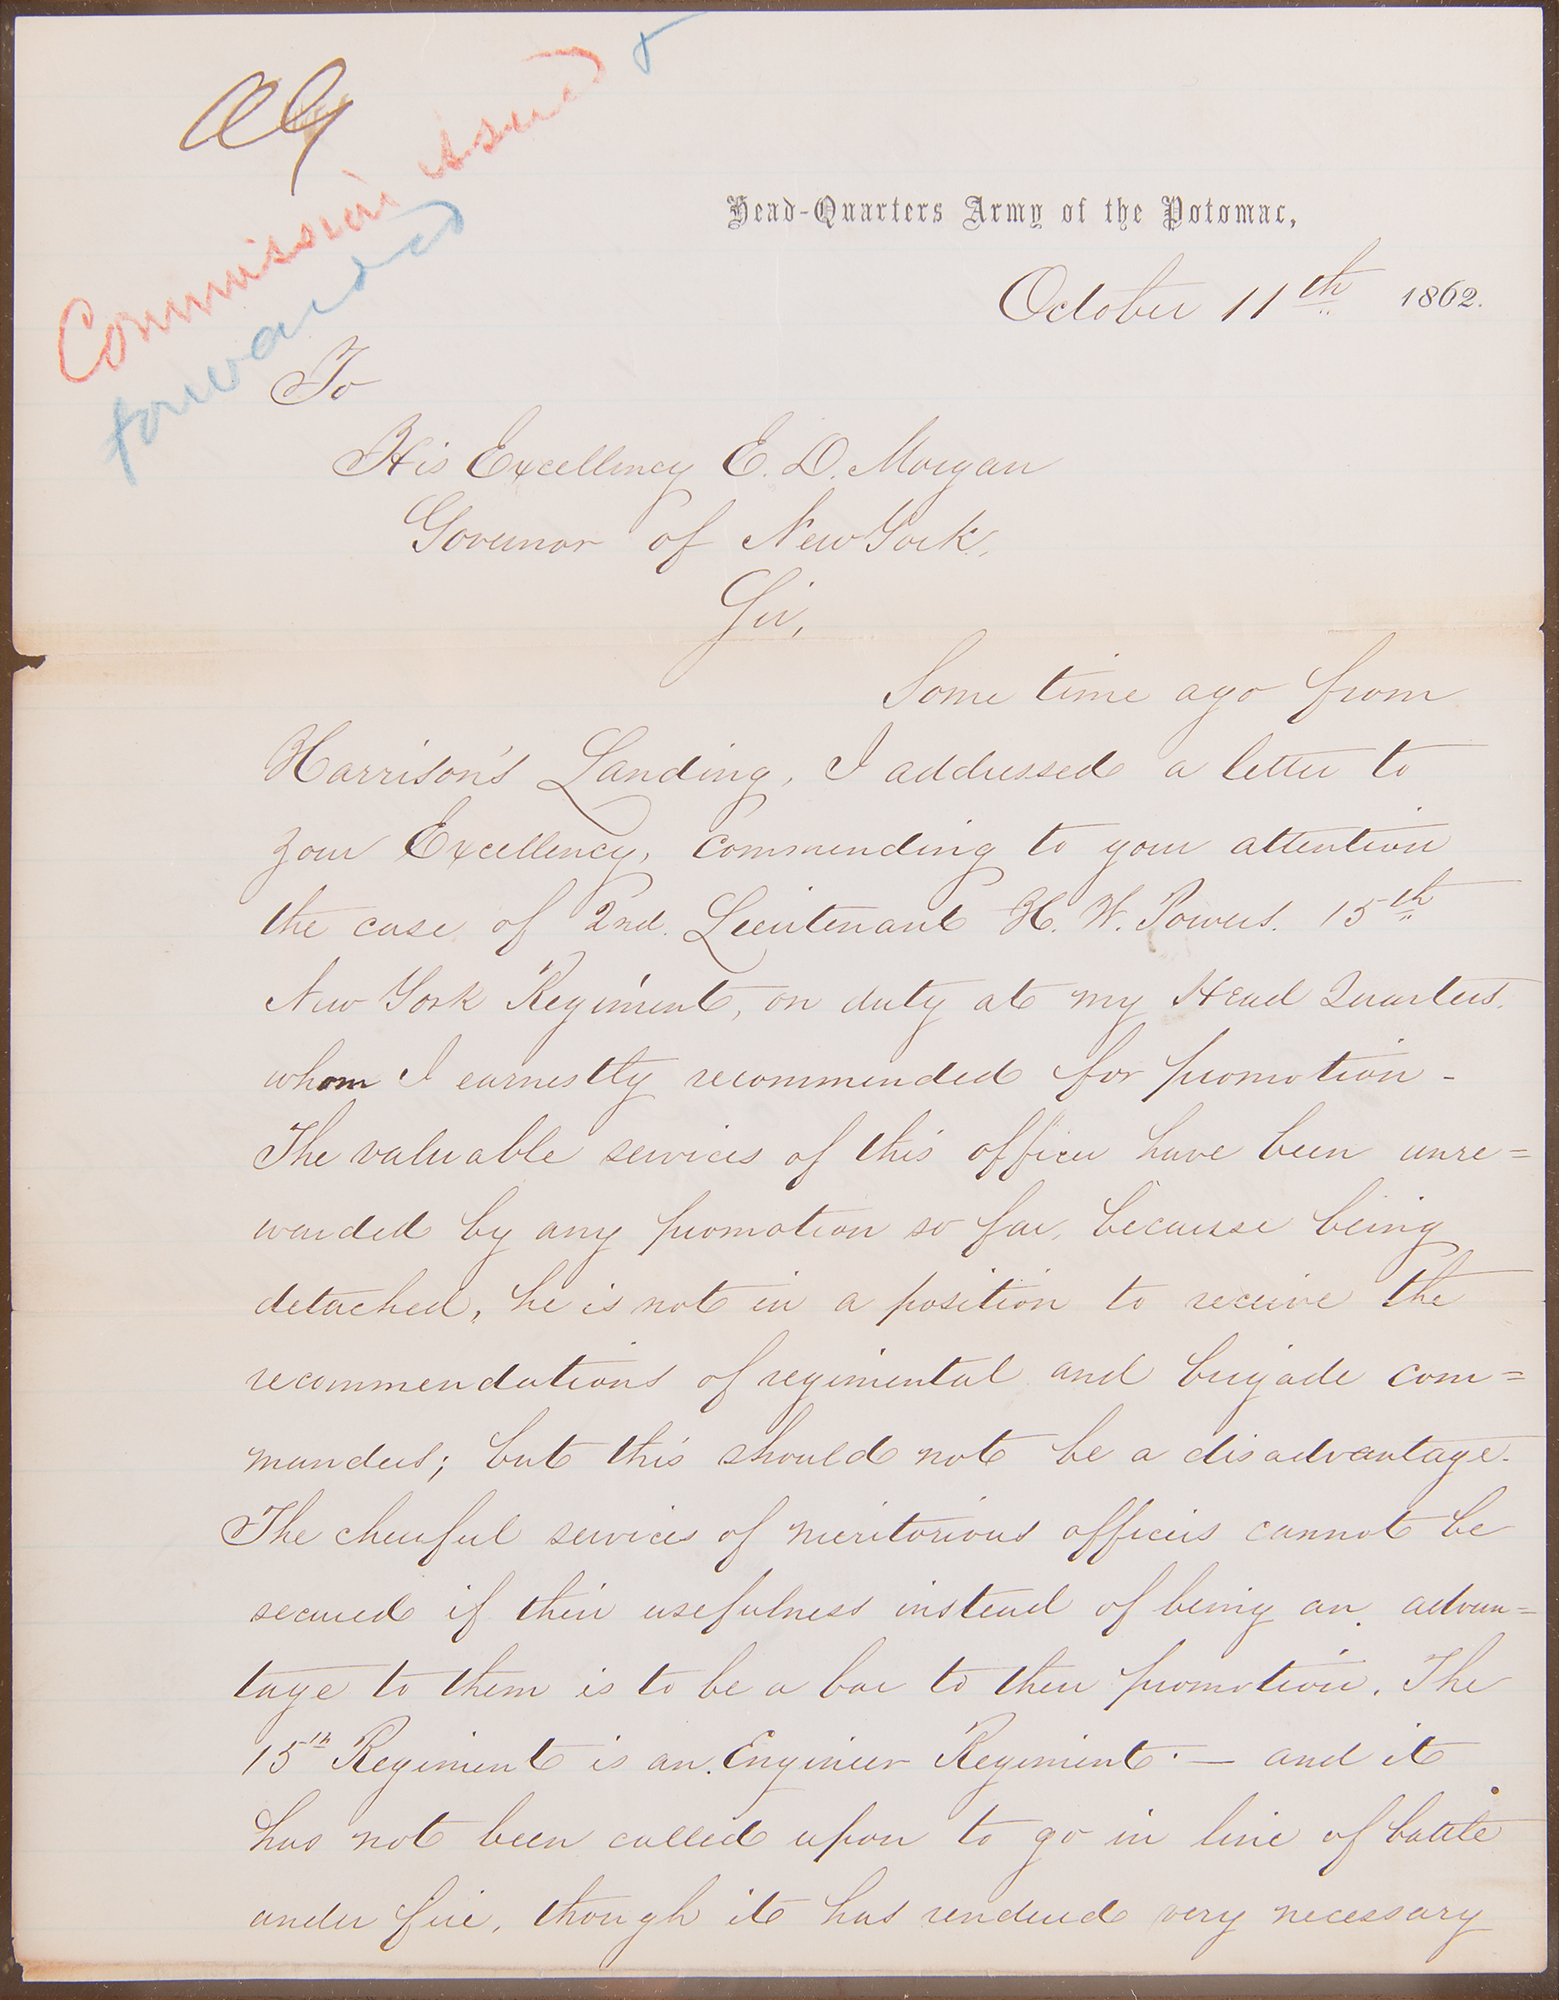 Commission issued &
forwarded
Head-Quarters Army of the Potomac,
October 11th 1862.
To
His Excellency E. D. Morgan
Governor of New York,
Sir,
Some time ago from
Harrison's Landing, I addressed a letter to
your Excellency, commending to your attention
the case of 2nd. Lieutenant H. W. Powers. 15th
New York Regiment, on duty at my Head Quarters.
whom I earnestly recommended for promotion -
The valuable services of this officer have been unre=
warded by any promotion so far, because being
detached, he is not in a position to receive the
recommendations of regimental and brigade com=
manders; but this should not be a disadvantage.
The cheerful services of meritorious officers cannot be
secured if their usefulness instead of being an advan=
tage to them is to be a bar to their promotion. The
15th Regiment is an Engineer Regiment. — and it
has not been called upon to go in line of battle
under fire, though it has rendered very necessary